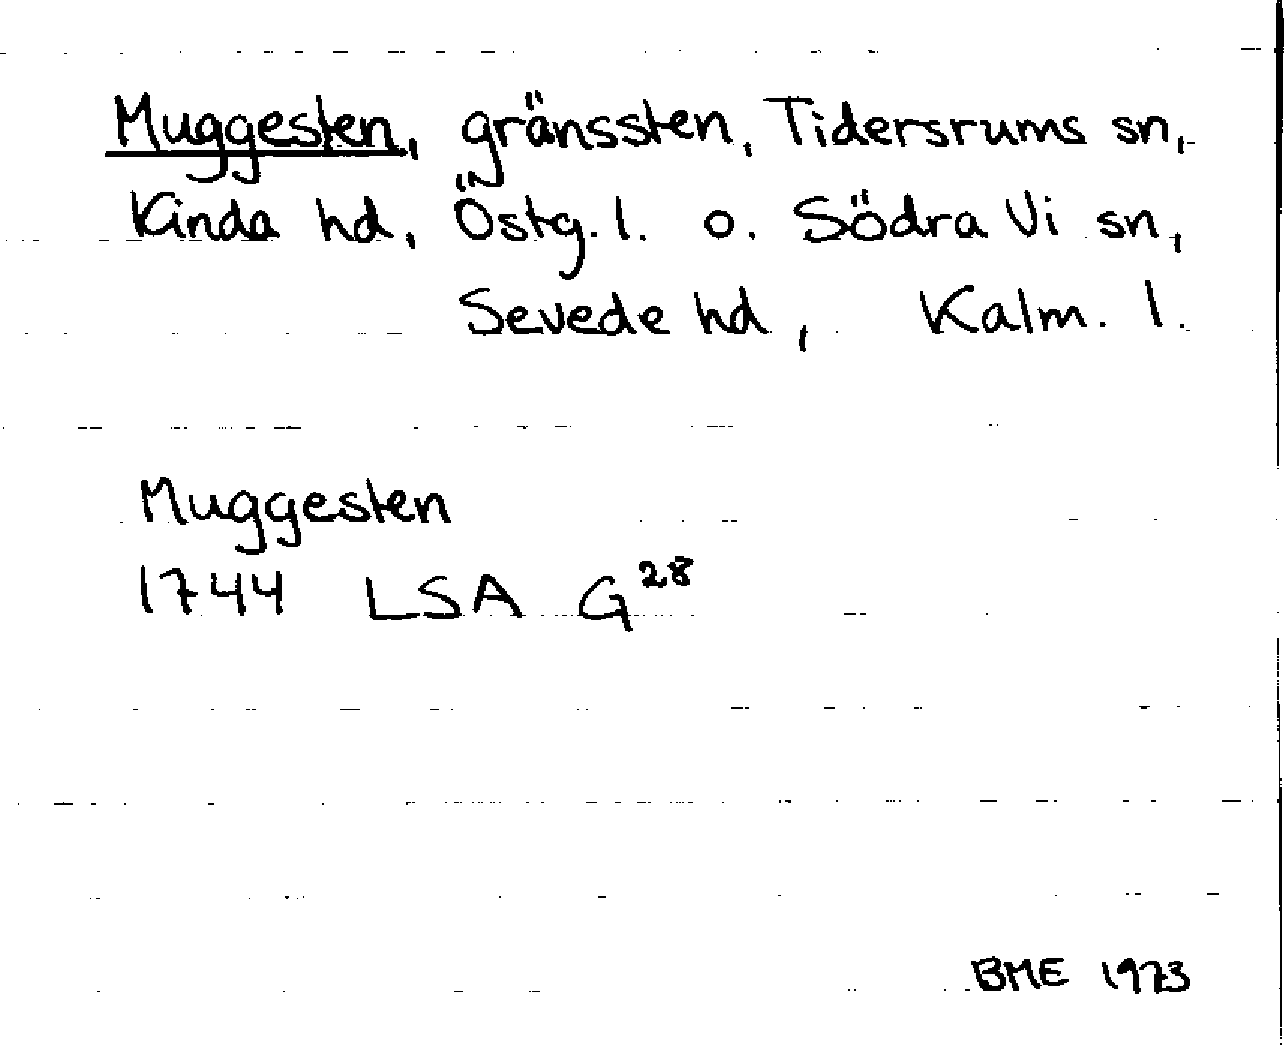 Muggesten, gränssten, Tidersrums sn,
Kinda hd, Östg. l. o. Södra Vi sn,
Sevede hd, Kalm. l.
Muggesten
1744 LSA G²⁸
BME 1973